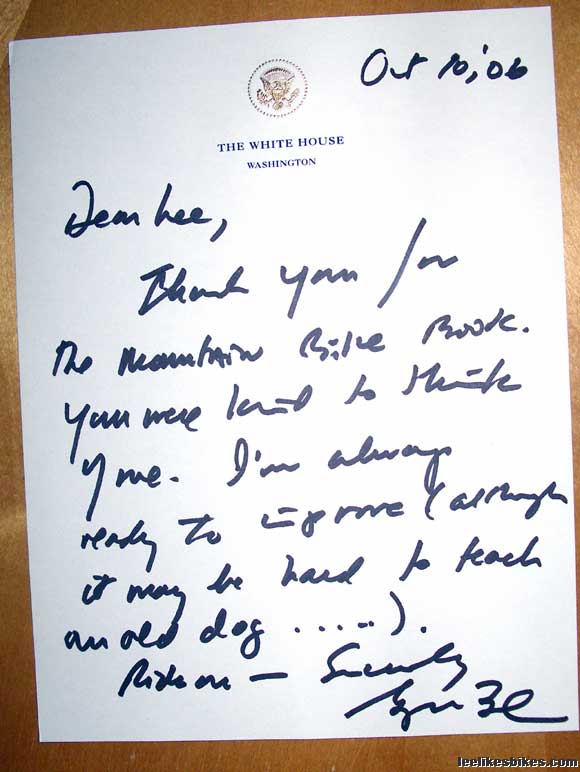 Oct 10, '06
THE WHITE HOUSE
WASHINGTON
Dear Lee,
Thank you for
the mountain Bike Book.
You were kind to think
of me. I'm always
ready to improve (although
it may be hard to teach
an old dog .....).
Ride on — Sincerely
leelikesbikes.com